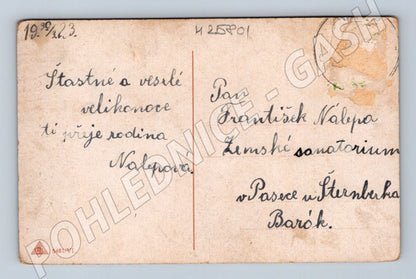 19 30/III. 23.
H25801
Šťastné a veselé
velikonoce
ti přeje rodina
Nalepova.
Pan
František Nalepa
Zemské sanatorium
v Pasece u Šternberka
Barák.
POHLEDNICE - GASH